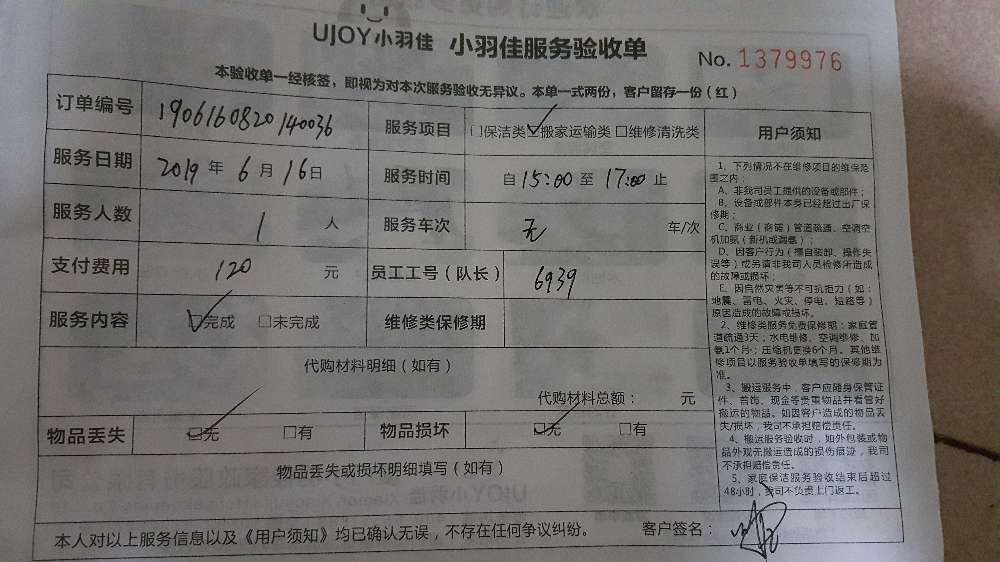 UJOY小羽佳 小羽佳服务验收单
No. 1379976
本验收单一经核签，即视为对本次服务验收无异议。本单一式两份，客户留存一份（红）
订单编号 1906160820140036 服务项目 □保洁类 ☑搬家运输类 □维修清洗类
服务日期 2019 年 6 月 16 日 服务时间 自 15:00 至 17:00 止
服务人数 1 人 服务车次 无 车/次
支付费用 120 元 员工工号（队长） 6939
服务内容 ☑完成 □未完成 维修类保修期
代购材料明细（如有）
代购材料总额： 元
物品丢失 ☑无 □有 物品损坏 ☑无 □有
物品丢失或损坏明细填写（如有）
用户须知
1、下列情况不在维修项目的维保范
围之内：
A、非我司员工提供的设备或部件；
B、设备或部件本身已经超过出厂保
修期；
C、商业（商铺）管道疏通、空调空
机加氨（新机或漏氨）；
D、因客户行为（擅自装卸、操作失
误等）或另请非我司人员检修所造成
的故障或损坏；
E、因自然灾害等不可抗拒力（如：
地震、雷电、火灾、停电、短路等）
原因造成的故障或损坏。
2、维修类服务免费保修期：家庭管
道疏通3天；水电维修、空调维修、加
氨1个月；压缩机更换6个月。其他维
修项目以服务验收单填写的保修期为
准。
3、搬运服务中，客户应随身保管证
件、首饰、现金等贵重物品并看管好
搬运的物品。如因客户造成的物品丢
失/损坏，我司不承担赔偿责任。
4、搬运服务验收时，如外包装或物
品外观无搬运造成的损伤痕迹，我司
不承担赔偿责任。
5、家庭保洁服务验收结束后超过
48小时，我司不负责上门返工。
本人对以上服务信息以及《用户须知》均已确认无误，不存在任何争议纠纷。 客户签名：